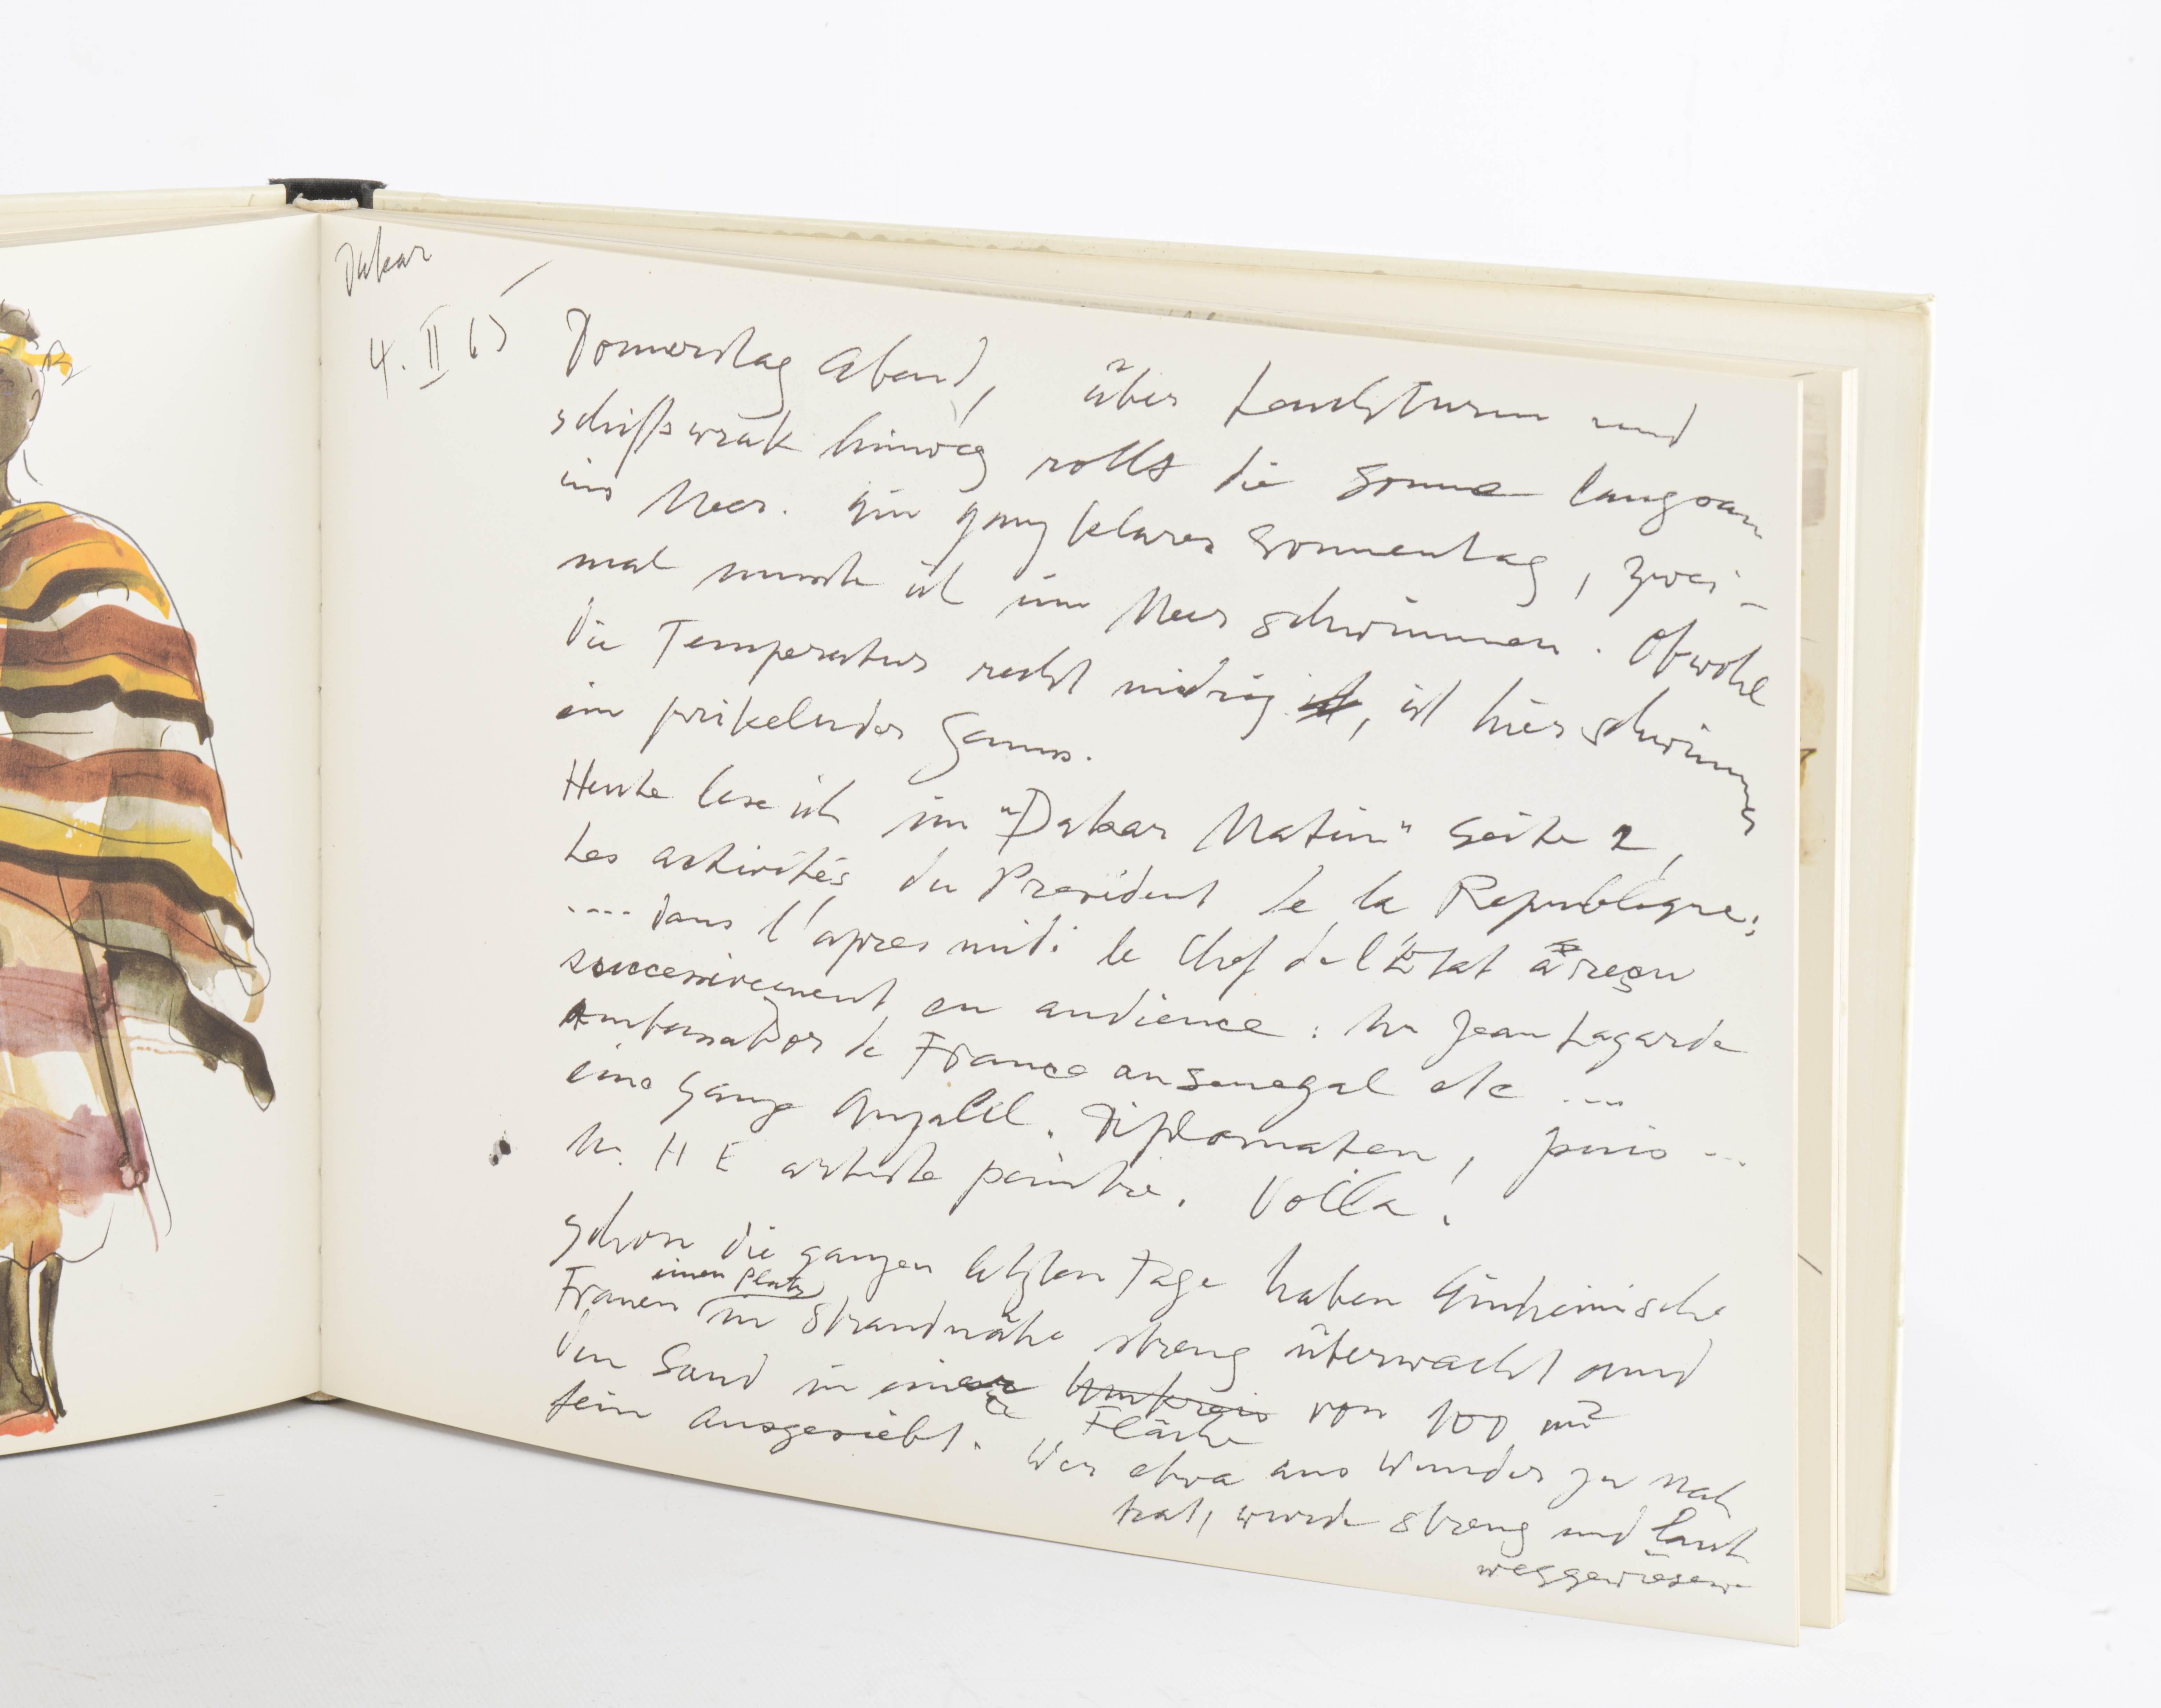 Dakar
4. II 65
Donnerstag Abend, über Leuchtturm und
schiffswrak hinweg rollt die Sonne langsam
ins Meer. Ein ganz klarer Sonnentag, zwei-
mal musste ich im Meer schwimmen. Obwohl
die Temperatur recht niedrig ist, ist hier schwimmen
ein prikelnder Genuss.
Heute lese ich im "Dakar Matin" Seite 2,
Les activités du President de la Republique:
.... dans l'apres midi le Chef de l'Etat à reçu
successivement en audience : Mr Jean Lagarde
Ambassador de France au Senegal etc ...
eine Ganze Anzahl. Diplomaten, puis ...
Mr. H E artiste peintre. Voila!
Schon die ganzen letzten Tage haben Einheimische
einen Platz
Frauen in Strandnähe streng überwacht und
den Sand in einer Umkreis von 100 m²
Fläche
fein Ausgesiebt. Wer etwa aus Wunder zu nah
trat, wurde streng und laut
weggewiesen